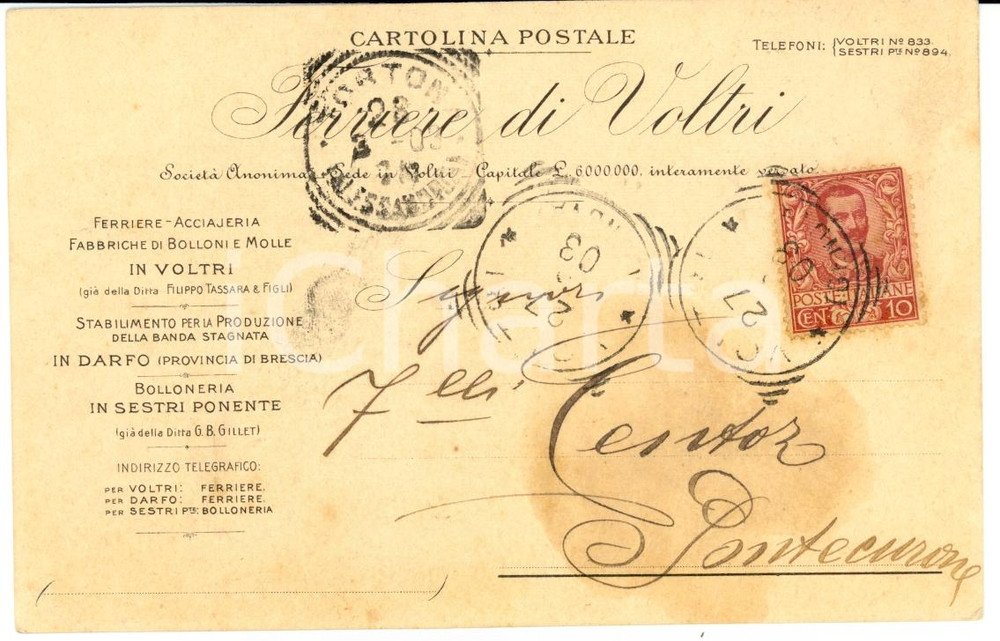 CARTOLINA POSTALE
TELEFONI: VOLTRI No 833.
SESTRI PTE No 894.
Ferriere di Voltri
Società Anonima Sede in Voltri - Capitale L. 6000000, interamente versato
FERRIERE - ACCIAJERIA
FABBRICHE DI BOLLONI E MOLLE
IN VOLTRI
(già della Ditta FILIPPO TASSARA & FIGLI)
STABILIMENTO PER LA PRODUZIONE
DELLA BANDA STAGNATA
IN DARFO (PROVINCIA DI BRESCIA)
BOLLONERIA
IN SESTRI PONENTE
(già della Ditta G. B. GILLET)
INDIRIZZO TELEGRAFICO:
PER VOLTRI: FERRIERE.
PER DARFO: FERRIERE.
PER SESTRI PTE: BOLLONERIA
Signori
Flli
Centoz
Pontecurone
POSTE ITALIANE
CEN 10
TORTONA
03
ALESSANDRIA
VOLTRI
27
03
VOLTRI
27
03
Charta